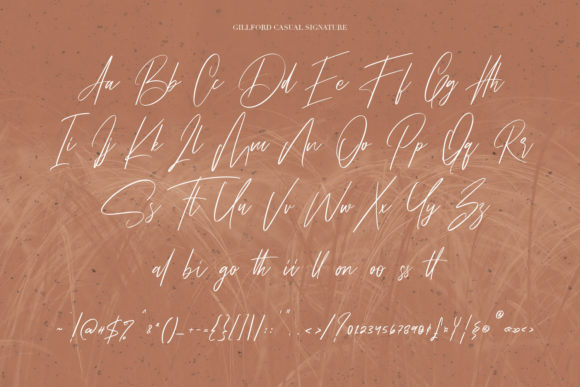 GILLFORD CASUAL SIGNATURE
Aa Bb Cc Dd Ee Ff Gg Hh
Ii Jj Kk Ll Mm Nn Oo Pp Qq Rr
Ss Tt Uu Vv Ww Xx Yy Zz
al bi go th ii ll on oo ss tt
~ !@#$% ^ & * ()_ +-={}[]|\ : ; ' " , . <>/? 0123456789